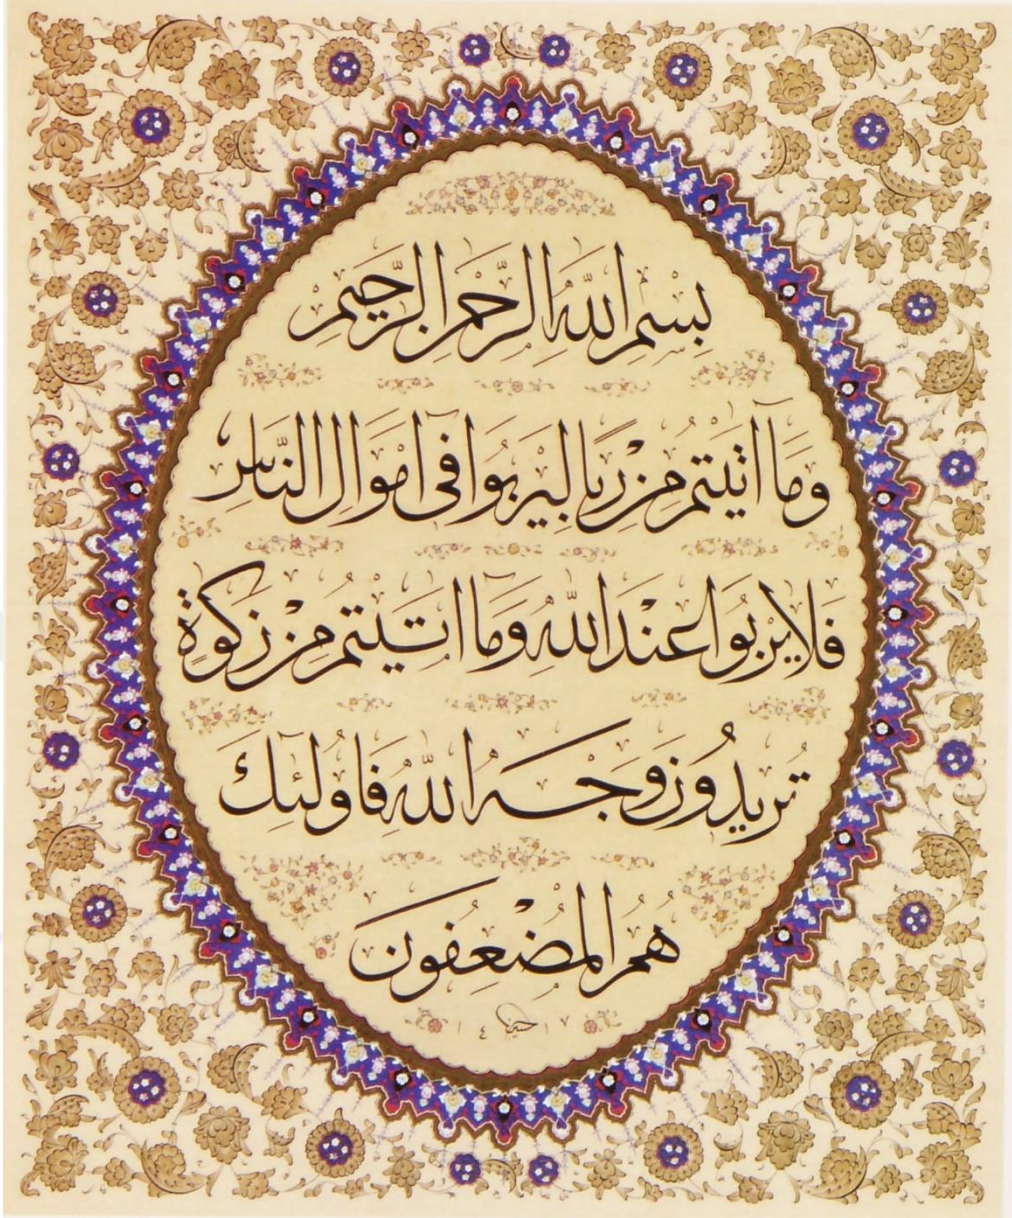 بِسْمِ اللّٰهِ الرَّحْمٰنِ الرَّحِيمِ
وَمَآ اٰتَيْتُمْ مِنْ رِبًا لِيَرْبُوَا فِىٓ اَمْوَالِ النَّاسِ
فَلَا يَرْبُوا عِنْدَ اللّٰهِ وَمَآ اٰتَيْتُمْ مِنْ زَكٰوةٍ
تُرِيدُونَ وَجْهَ اللّٰهِ فَاُولٰٓئِكَ
هُمُ الْمُضْعِفُونَ